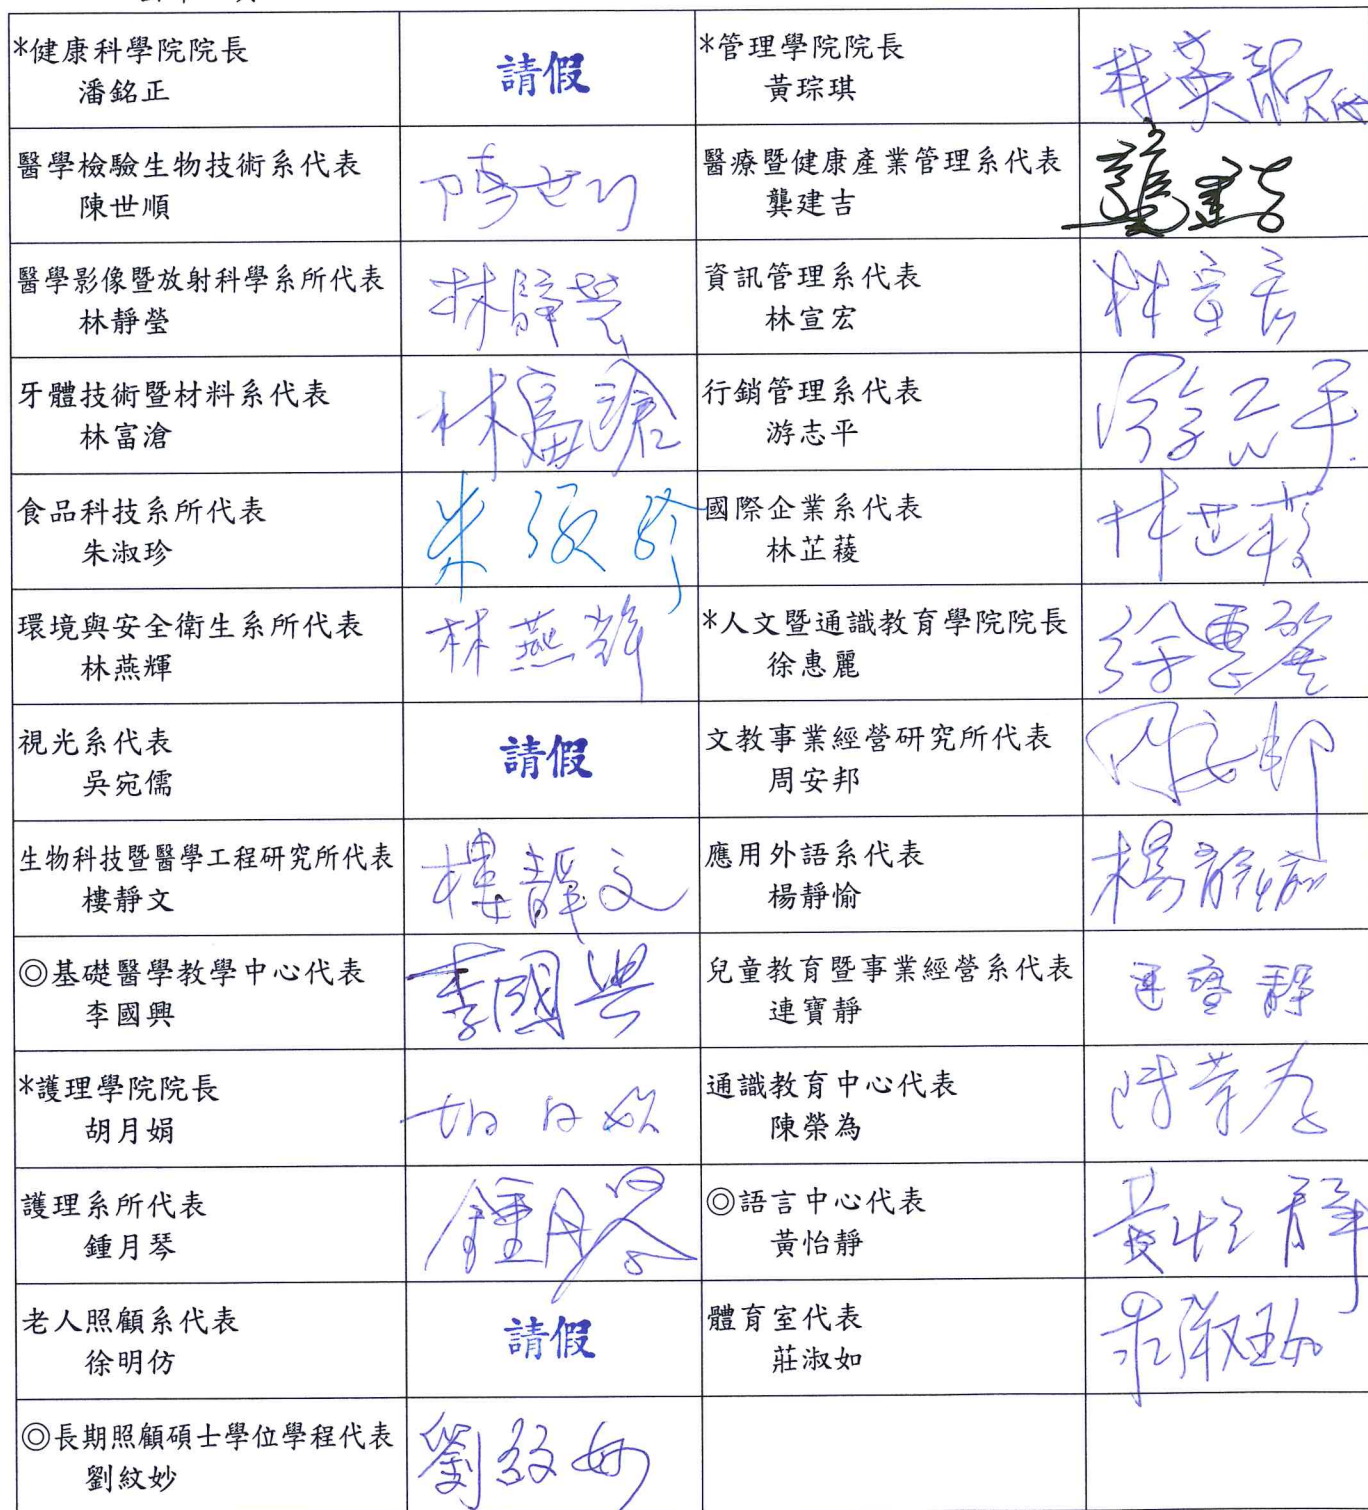 *健康科學院院長
潘銘正
請假
*管理學院院長
黃琮琪
醫學檢驗生物技術系代表
陳世順
醫療暨健康產業管理系代表
龔建吉
龔建吉
醫學影像暨放射科學系所代表
林靜瑩
林靜瑩
資訊管理系代表
林宣宏
林宣宏
牙體技術暨材料系代表
林富滄
林富滄
行銷管理系代表
游志平
游志平
食品科技系所代表
朱淑珍
朱淑珍
國際企業系代表
林芷薐
林芷薐
環境與安全衛生系所代表
林燕輝
林燕輝
*人文暨通識教育學院院長
徐惠麗
徐惠麗
視光系代表
吳宛儒
請假
文教事業經營研究所代表
周安邦
周安邦
生物科技暨醫學工程研究所代表
樓靜文
樓靜文
應用外語系代表
楊靜愉
楊靜愉
◎基礎醫學教學中心代表
李國興
李國興
兒童教育暨事業經營系代表
連寶靜
連寶靜
*護理學院院長
胡月娟
胡月娟
通識教育中心代表
陳榮為
陳榮為
護理系所代表
鍾月琴
鍾月琴
◎語言中心代表
黃怡靜
黃怡靜
老人照顧系代表
徐明仿
請假
體育室代表
莊淑如
莊淑如
◎長期照顧碩士學位學程代表
劉紋妙
劉紋妙